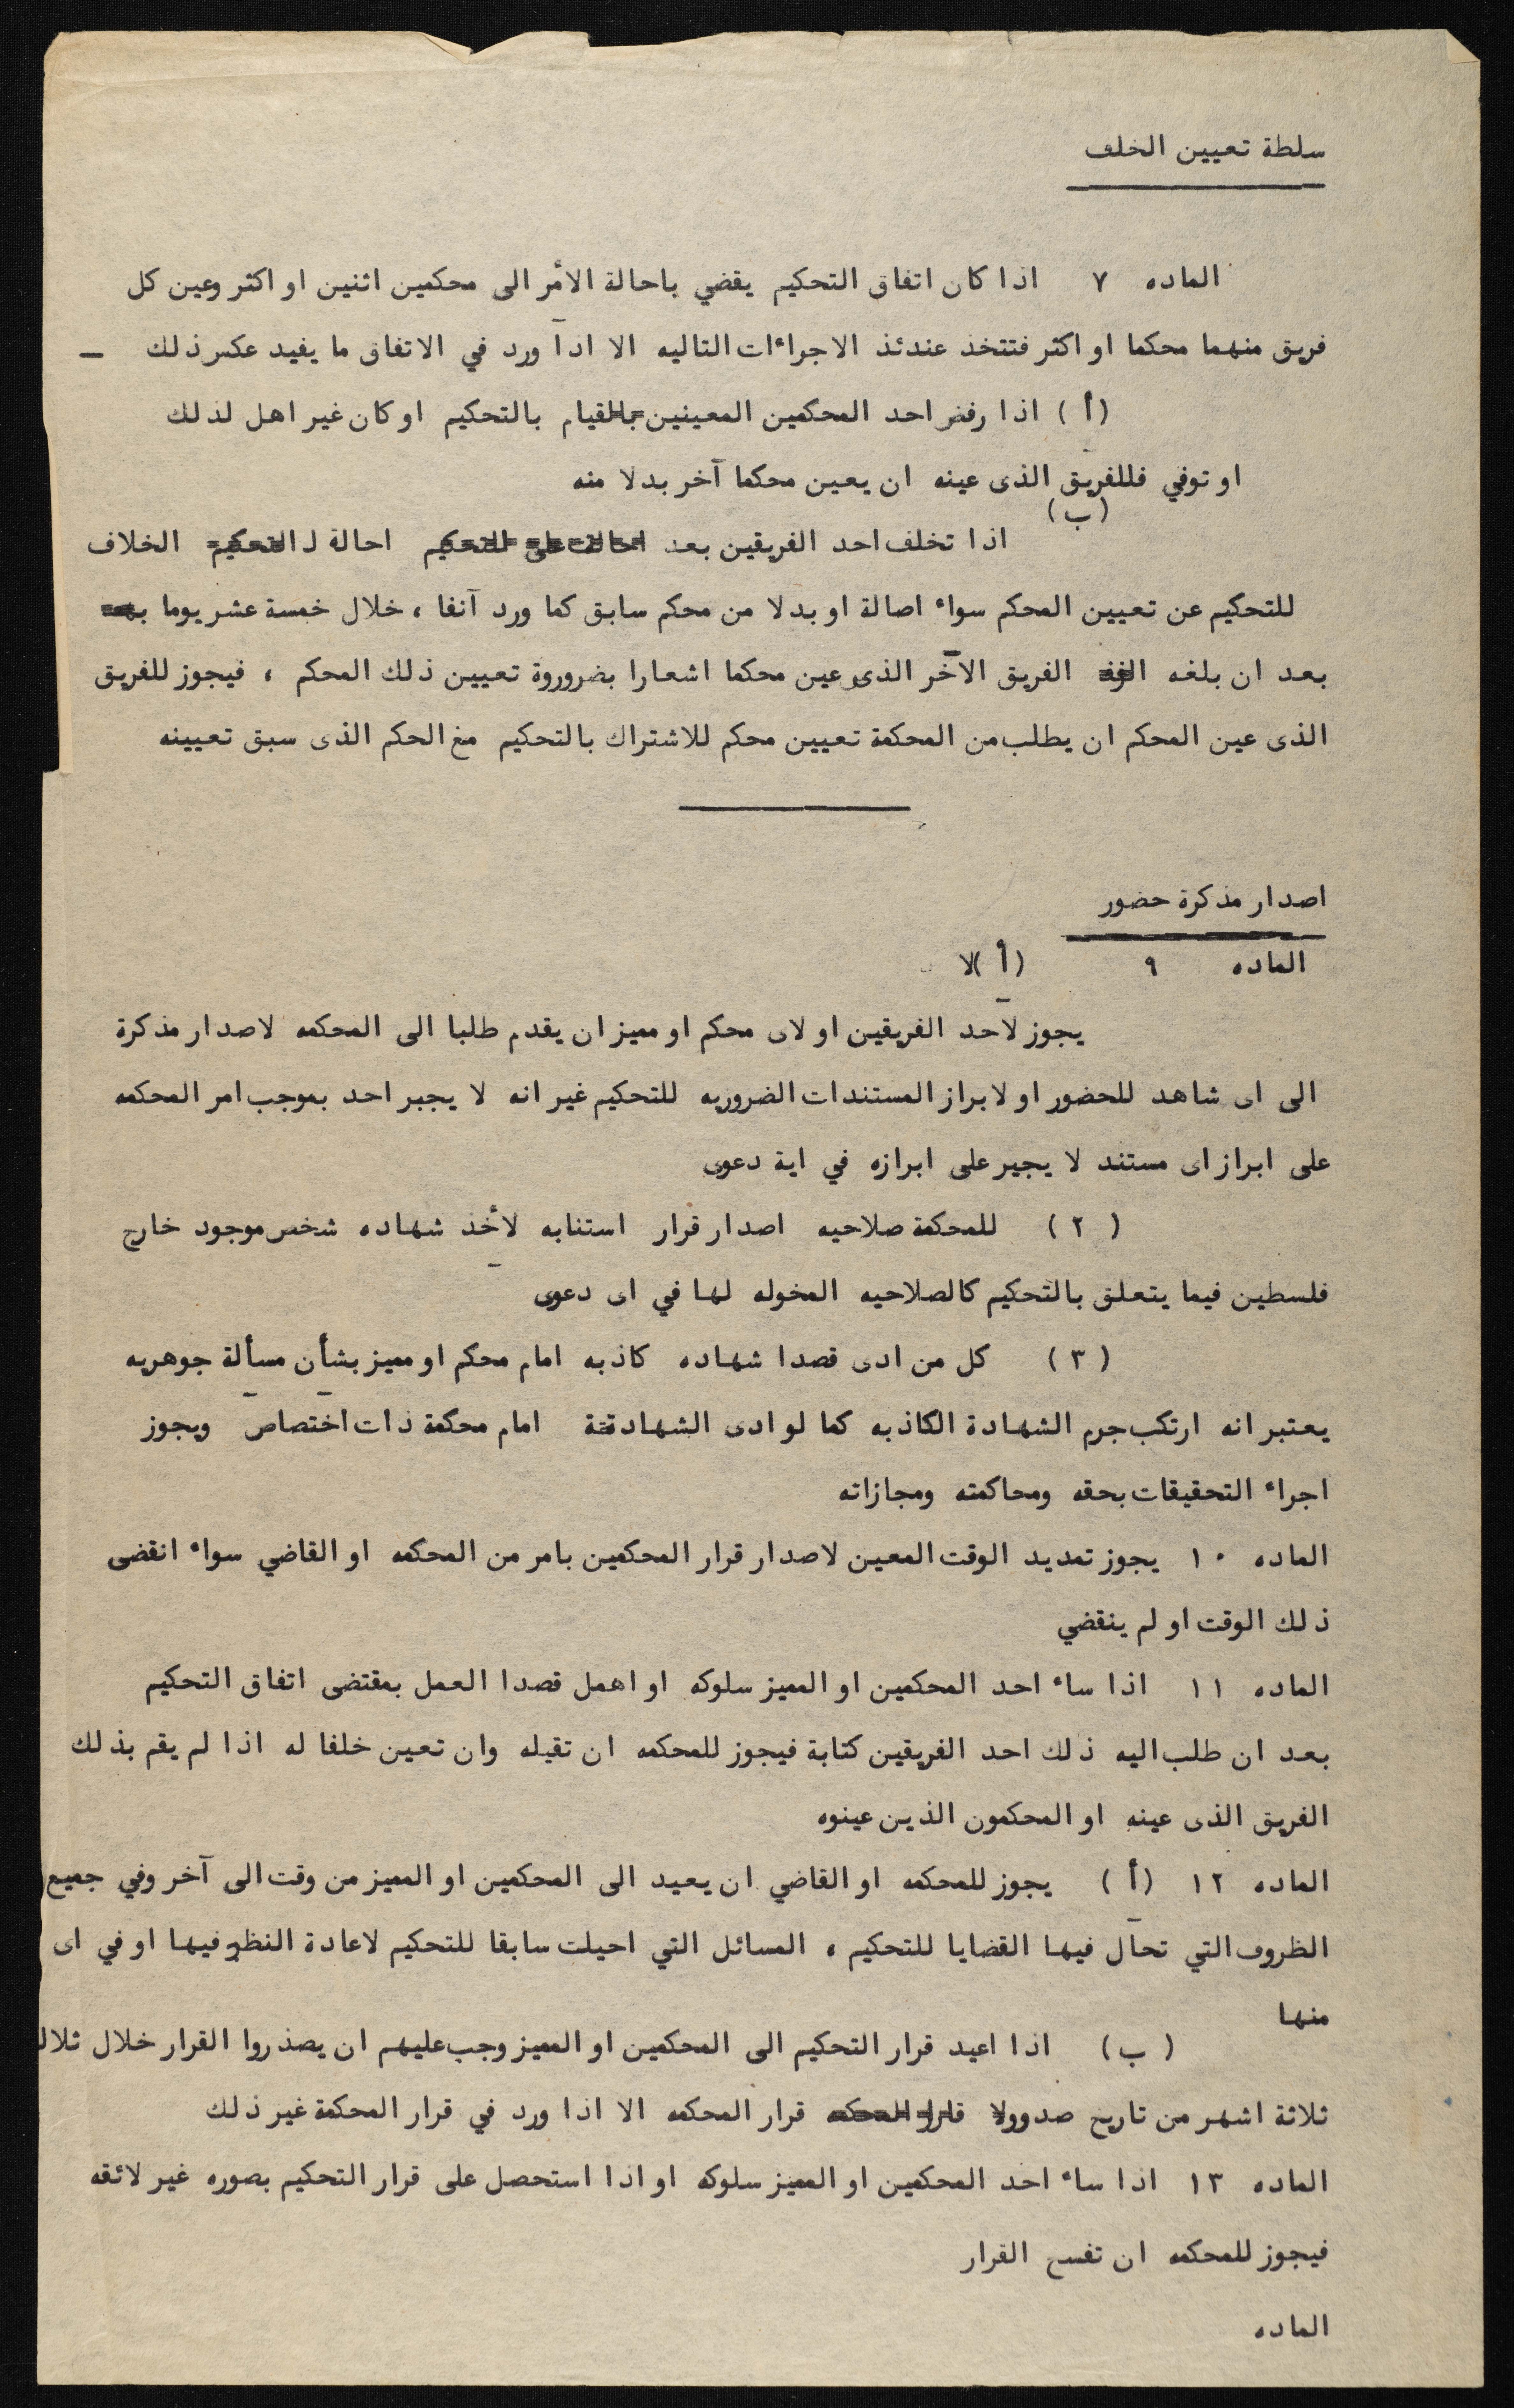 سلطة تعيين الخلف
الماده ٧ اذا كان اتفاق التحكيم يقضي باحالة الأمر الى محكمين اثنين او اكثر وعين كل
فريق منهما محكما او اكثر فتتخذ عندئذ الاجراءات التاليه الا اذا ورد في الاتفاق ما يفيد عكس ذلك —
(أ) اذا رفض احد المحكمين المعينين بالقيام بالتحكيم او كان غير اهل لذلك
او توفي فللفريق الذى عينه ان يعين محكما آخر بدلا منه
(ب)
اذا تخلف احد الفريقين بعد احالة لـ التحكيم الخلاف
للتحكيم عن تعيين المحكم سواء اصالة او بدلا من محكم سابق كما ورد آنفا ، خلال خمسة عشر يوما
بعد ان بلغه الفريق الآخر الذى عين محكما اشعارا بضروروة تعيين ذلك المحكم ، فيجوز للفريق
الذى عين المحكم ان يطلب من المحكمة تعيين محكم للاشتراك بالتحكيم مع الحكم الذى سبق تعيينه
اصدار مذكرة حضور
الماده ٩ (أ) لا
يجوز لاحد الفريقين او لاى محكم او مميز ان يقدم طلبا الى المحكمه لاصدار مذكرة
الى اى شاهد للحضور او لابراز المستندات الضروريه للتحكيم غير انه لا يجبر احد بموجب امر المحكمه
على ابراز اى مستند لا يجبر على ابرازه في اية دعوى
(٢) للمحكمة صلاحيه اصدار قرار استنابه لأخذ شهاده شخص موجود خارج
فلسطين فيما يتعلق بالتحكيم كالصلاحيه المخوله لها في اى دعوى
(٣) كل من ادى قصدا شهاده كاذبه امام محكم او مميز بشأن مسألة جوهريه
يعتبر انه ارتكب جرم الشهادة الكاذبه كما لو ادى الشهادة امام محكمة ذات اختصاص ويجوز
اجراء التحقيقات بحقه ومحاكمته ومجازاته
الماده ١٠ يجوز تمديد الوقت المعين لاصدار قرار المحكمين بامر من المحكمه او القاضي سواء انقضى
ذلك الوقت او لم ينقضي
الماده ١١ اذا ساء احد المحكمين او المميز سلوكه او اهمل قصدا العمل بمقتضى اتفاق التحكيم
بعد ان طلب اليه ذلك احد الفريقين كتابة فيجوز للمحكمه ان تقيله وان تعين خلفا له اذا لم يقم بذلك
الفريق الذى عينه او المحكمون الذين عينوه
الماده ١٢ (أ) يجوز للمحكمه او القاضي ان يعيد الى المحكمين او المميز من وقت الى آخر وفي جميع
الظروف التي تحال فيها القضايا للتحكيم ، المسائل التي احيلت سابقا للتحكيم لاعادة النظر فيها او في اى
منها
(ب) اذا اعيد قرار التحكيم الى المحكمين او المميز وجب عليهم ان يصذروا القرار خلال ثلاث
ثلاثة اشهر من تاريخ صدور قرار المحكمه قرار المحكمه الا اذا ورد في قرار المحكمة غير ذلك
الماده ١٣ اذا ساء احد المحكمين او المميز سلوكه او اذا استحصل على قرار التحكيم بصوره غير لائقه
فيجوز للمحكمه ان تفسخ القرار
الماده